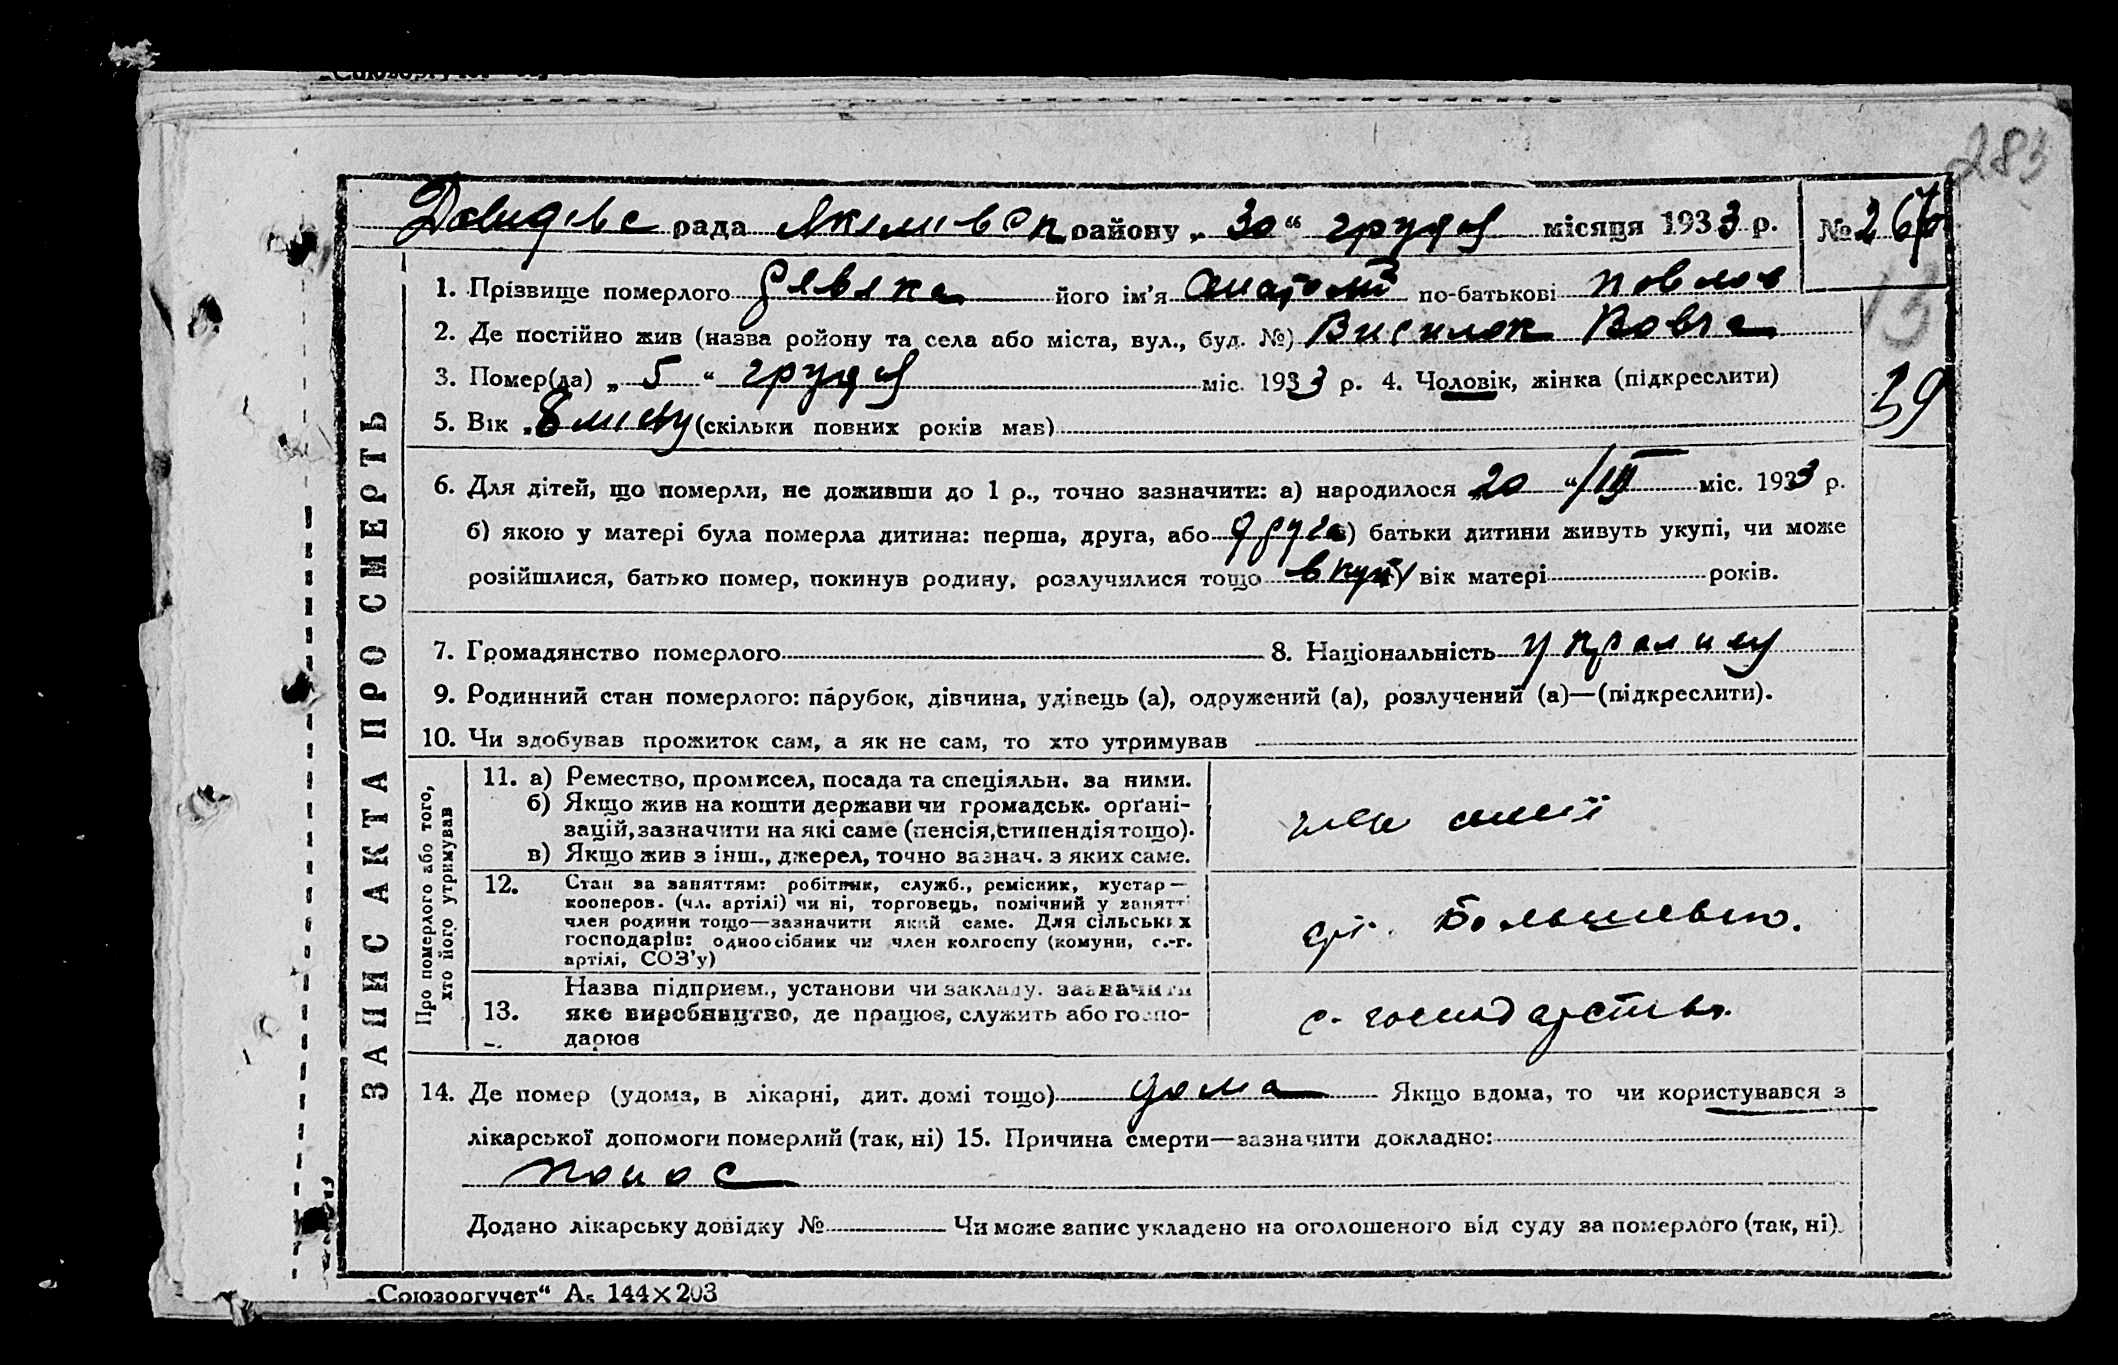 283
Давидівс рада Якимівск району „ 30 “ грудня місяця 1933 р. № 267
1. Прізвище померлого його ім'я Анатолі по-батькові Повлов
13
2. Де постійно жив (назва ройону та села або міста, вул., буд. №) Висилок Вовча
3. Помер(ла) „ 5 “ грудня міс. 1933 р. 4. Чоловік, жінка (підкреслити)
39
5. Вік „ 8 місяц (скільки повних років мав)
6. Для дітей, що померли, не доживши до 1 р., точно зазначити: а) народилося „ 20 “ /III міс. 1933 р.
б) якою у матері була померла дитина: перша, друга, або друга в) батьки дитини живуть укупі, чи може
розійшлися, батько помер, покинув родину, розлучилися тощо вкупі г) вік матері років.
7. Громадянство померлого 8. Національність
9. Родинний стан померлого: парубок, дівчина, удівець (а), одружений (а), розлучений (а)—(підкреслити).
10. Чи здобував прожиток сам, а як не сам, то хто утримував
ЗАПИС АКТА ПРО СМЕРТЬ
Про померлого або того, хто його утримував
11. а) Ремество, промисел, посада та спеціяльн. за ними.
б) Якщо жив на кошти держави чи громадськ. орґані-
зацій, зазначити на які саме (пенсія, стипендія тощо).
в) Якщо жив з інш., джерел, точно зазнач. з яких саме.
член сімї
12. Стан за заняттям: робітник, служб., ремісник, кустар—
кооперов. (чл. артілі) чи ні, торговець, помічний у занятті
член родини тощо—зазначити який саме. Для сільських
господарів: одноосібник чи член колгоспу (комуни, с.-г.
артілі, СОЗ'у)
арт. Большевик.
13. Назва підприєм., установи чи закладу. зазначити
яке виробництво, де працює, служить або госпо-
дарює
с. господарство.
14. Де помер (удома, в лікарні, дит. домі тощо) дома Якщо вдома, то чи користувався з
лікарської допомоги померлий (так, ні) 15. Причина смерти—зазначити докладно:
понос
Додано лікарську довідку № Чи може запис укладено на оголошеного від суду за померлого (так, ні).
„Союзоргучет“ А5 144×203